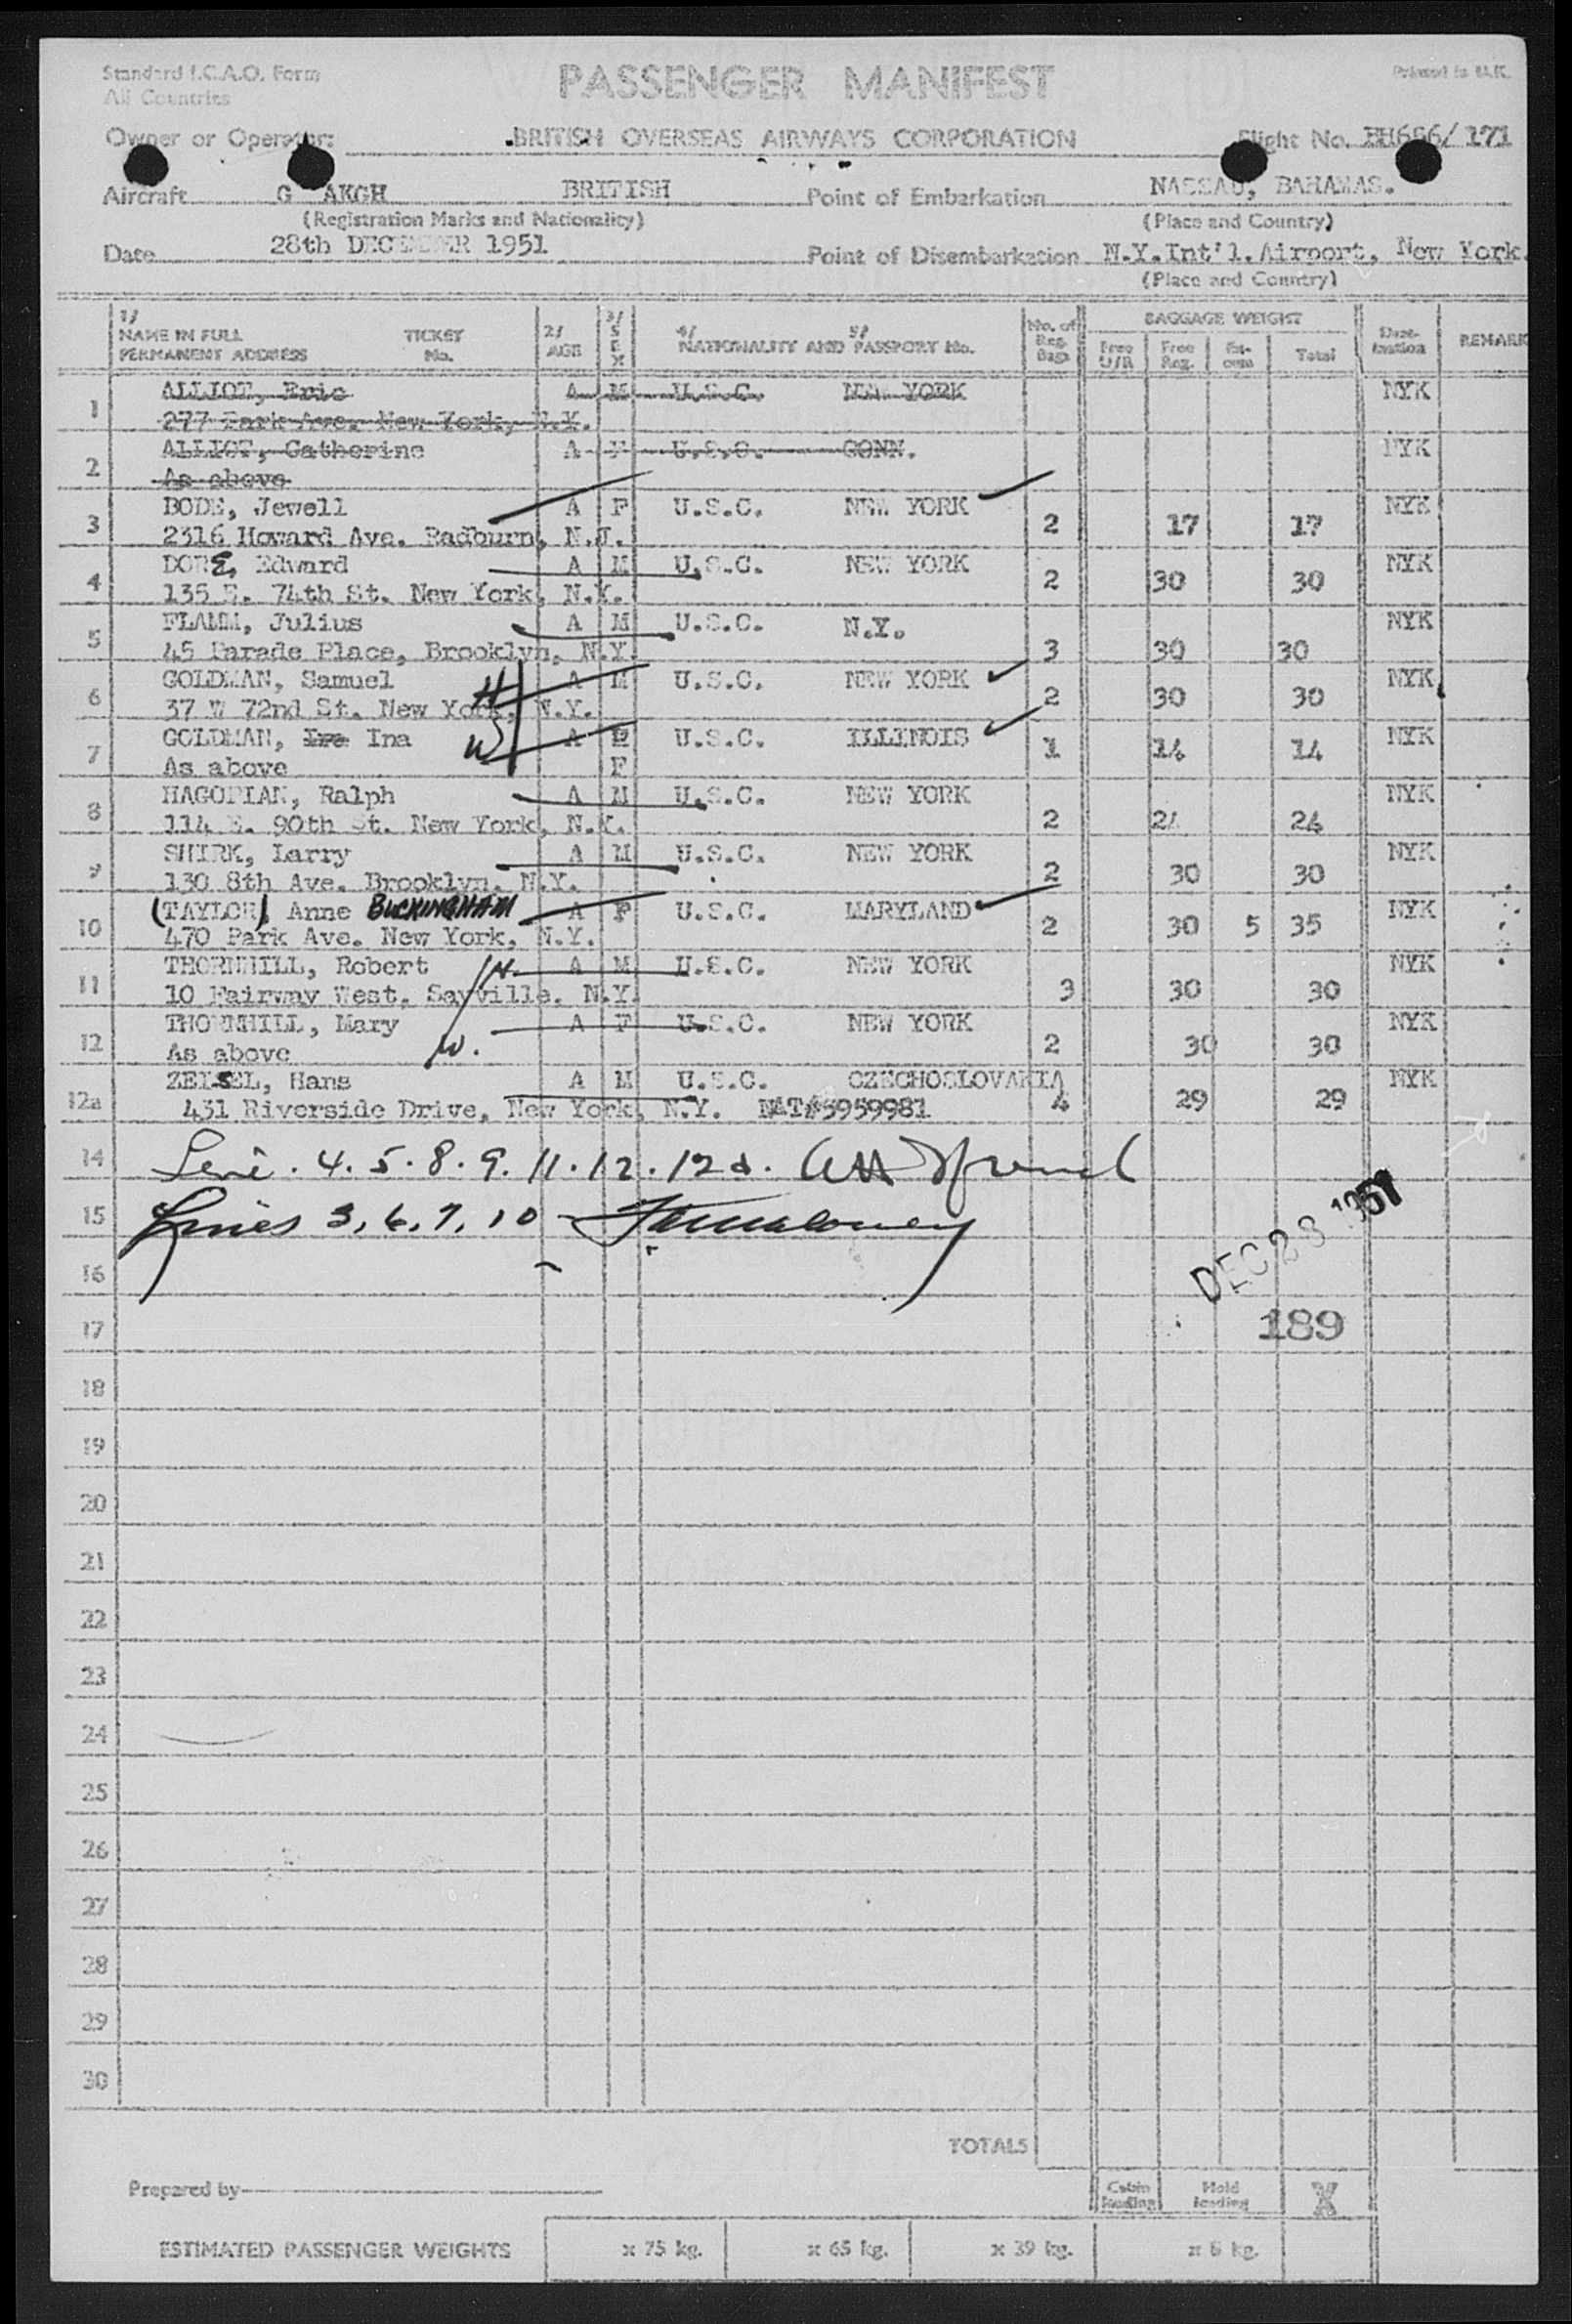 Standard I.C.A.O. Form
All Countries
PASSENGER MANIFEST
Printed in U.K.
Owner or Operator: BRITISH OVERSEAS AIRWAYS CORPORATION Flight No. BH656/171
Aircraft G AKGH BRITISH Point of Embarkation NASSAU, BAHAMAS.
(Registration Marks and Nationality) (Place and Country)
Date 28th DECEMBER 1951 Point of Disembarkation N.Y.Int'l.Airport, New York.
(Place and Country)
1/ NAME IN FULL PERMANENT ADDRESS TICKET No. 2/ AGE 3/ SEX 4/ NATIONALITY AND 5/ PASSPORT No. No. of Reg. Bags BAGGAGE WEIGHT Free U/R Free Reg. Ex-cess Total Dest-ination REMARK
1 ALLIOT, Eric A M U.S.C. NEW YORK NYK
277 Park Ave. New York, N.Y.
2 ALLIOT, Catherine A F U.S.C. CONN. NYK
As above
3 BODE, Jewell A F U.S.C. NEW YORK 2 17 17 NYK
2316 Howard Ave. Radburn, N.J.
4 DORE, Edward A M U.S.C. NEW YORK 2 30 30 NYK
135 E. 74th St. New York, N.Y.
5 FLAMM, Julius A M U.S.C. N.Y. 3 30 30 NYK
45 Parade Place, Brooklyn, N.Y.
6 GOLDMAN, Samuel H A M U.S.C. NEW YORK 2 30 30 NYK
37 W 72nd St. New York, N.Y.
7 GOLDMAN, Ira Ina W A M U.S.C. ILLINOIS 1 14 14 NYK
As above F
8 HAGOPIAN, Ralph A M U.S.C. NEW YORK 2 24 24 NYK
114 E. 90th St. New York, N.Y.
9 SHIRK, Larry A M U.S.C. NEW YORK 2 30 30 NYK
130 8th Ave. Brooklyn. N.Y.
10 (TAYLOR), Anne BUCKINGHAM A F U.S.C. MARYLAND 2 30 5 35 NYK
470 Park Ave. New York, N.Y.
11 THORNHILL, Robert H. A M U.S.C. NEW YORK 3 30 30 NYK
10 Fairway West, Sayville. N.Y.
12 THORNHILL, Mary W. A F U.S.C. NEW YORK 2 30 30 NYK
As above
12a ZEISEL, Hans A M U.S.C. CZECHOSLOVAKIA 4 29 29 NYK
431 Riverside Drive, New York, N.Y. NAT#5959981
14 4. 5. 8. 9. 11. 12. 12a.
15 Lines 3, 6, 7, 10
DEC 28 1951
16
17 189
18
19
20
21
22
23
24
25
26
27
28
29
30
TOTALS
Prepared by
Cabin loading Hold loading
ESTIMATED PASSENGER WEIGHTS x 75 kg. x 65 kg. x 39 kg. x 8 kg.